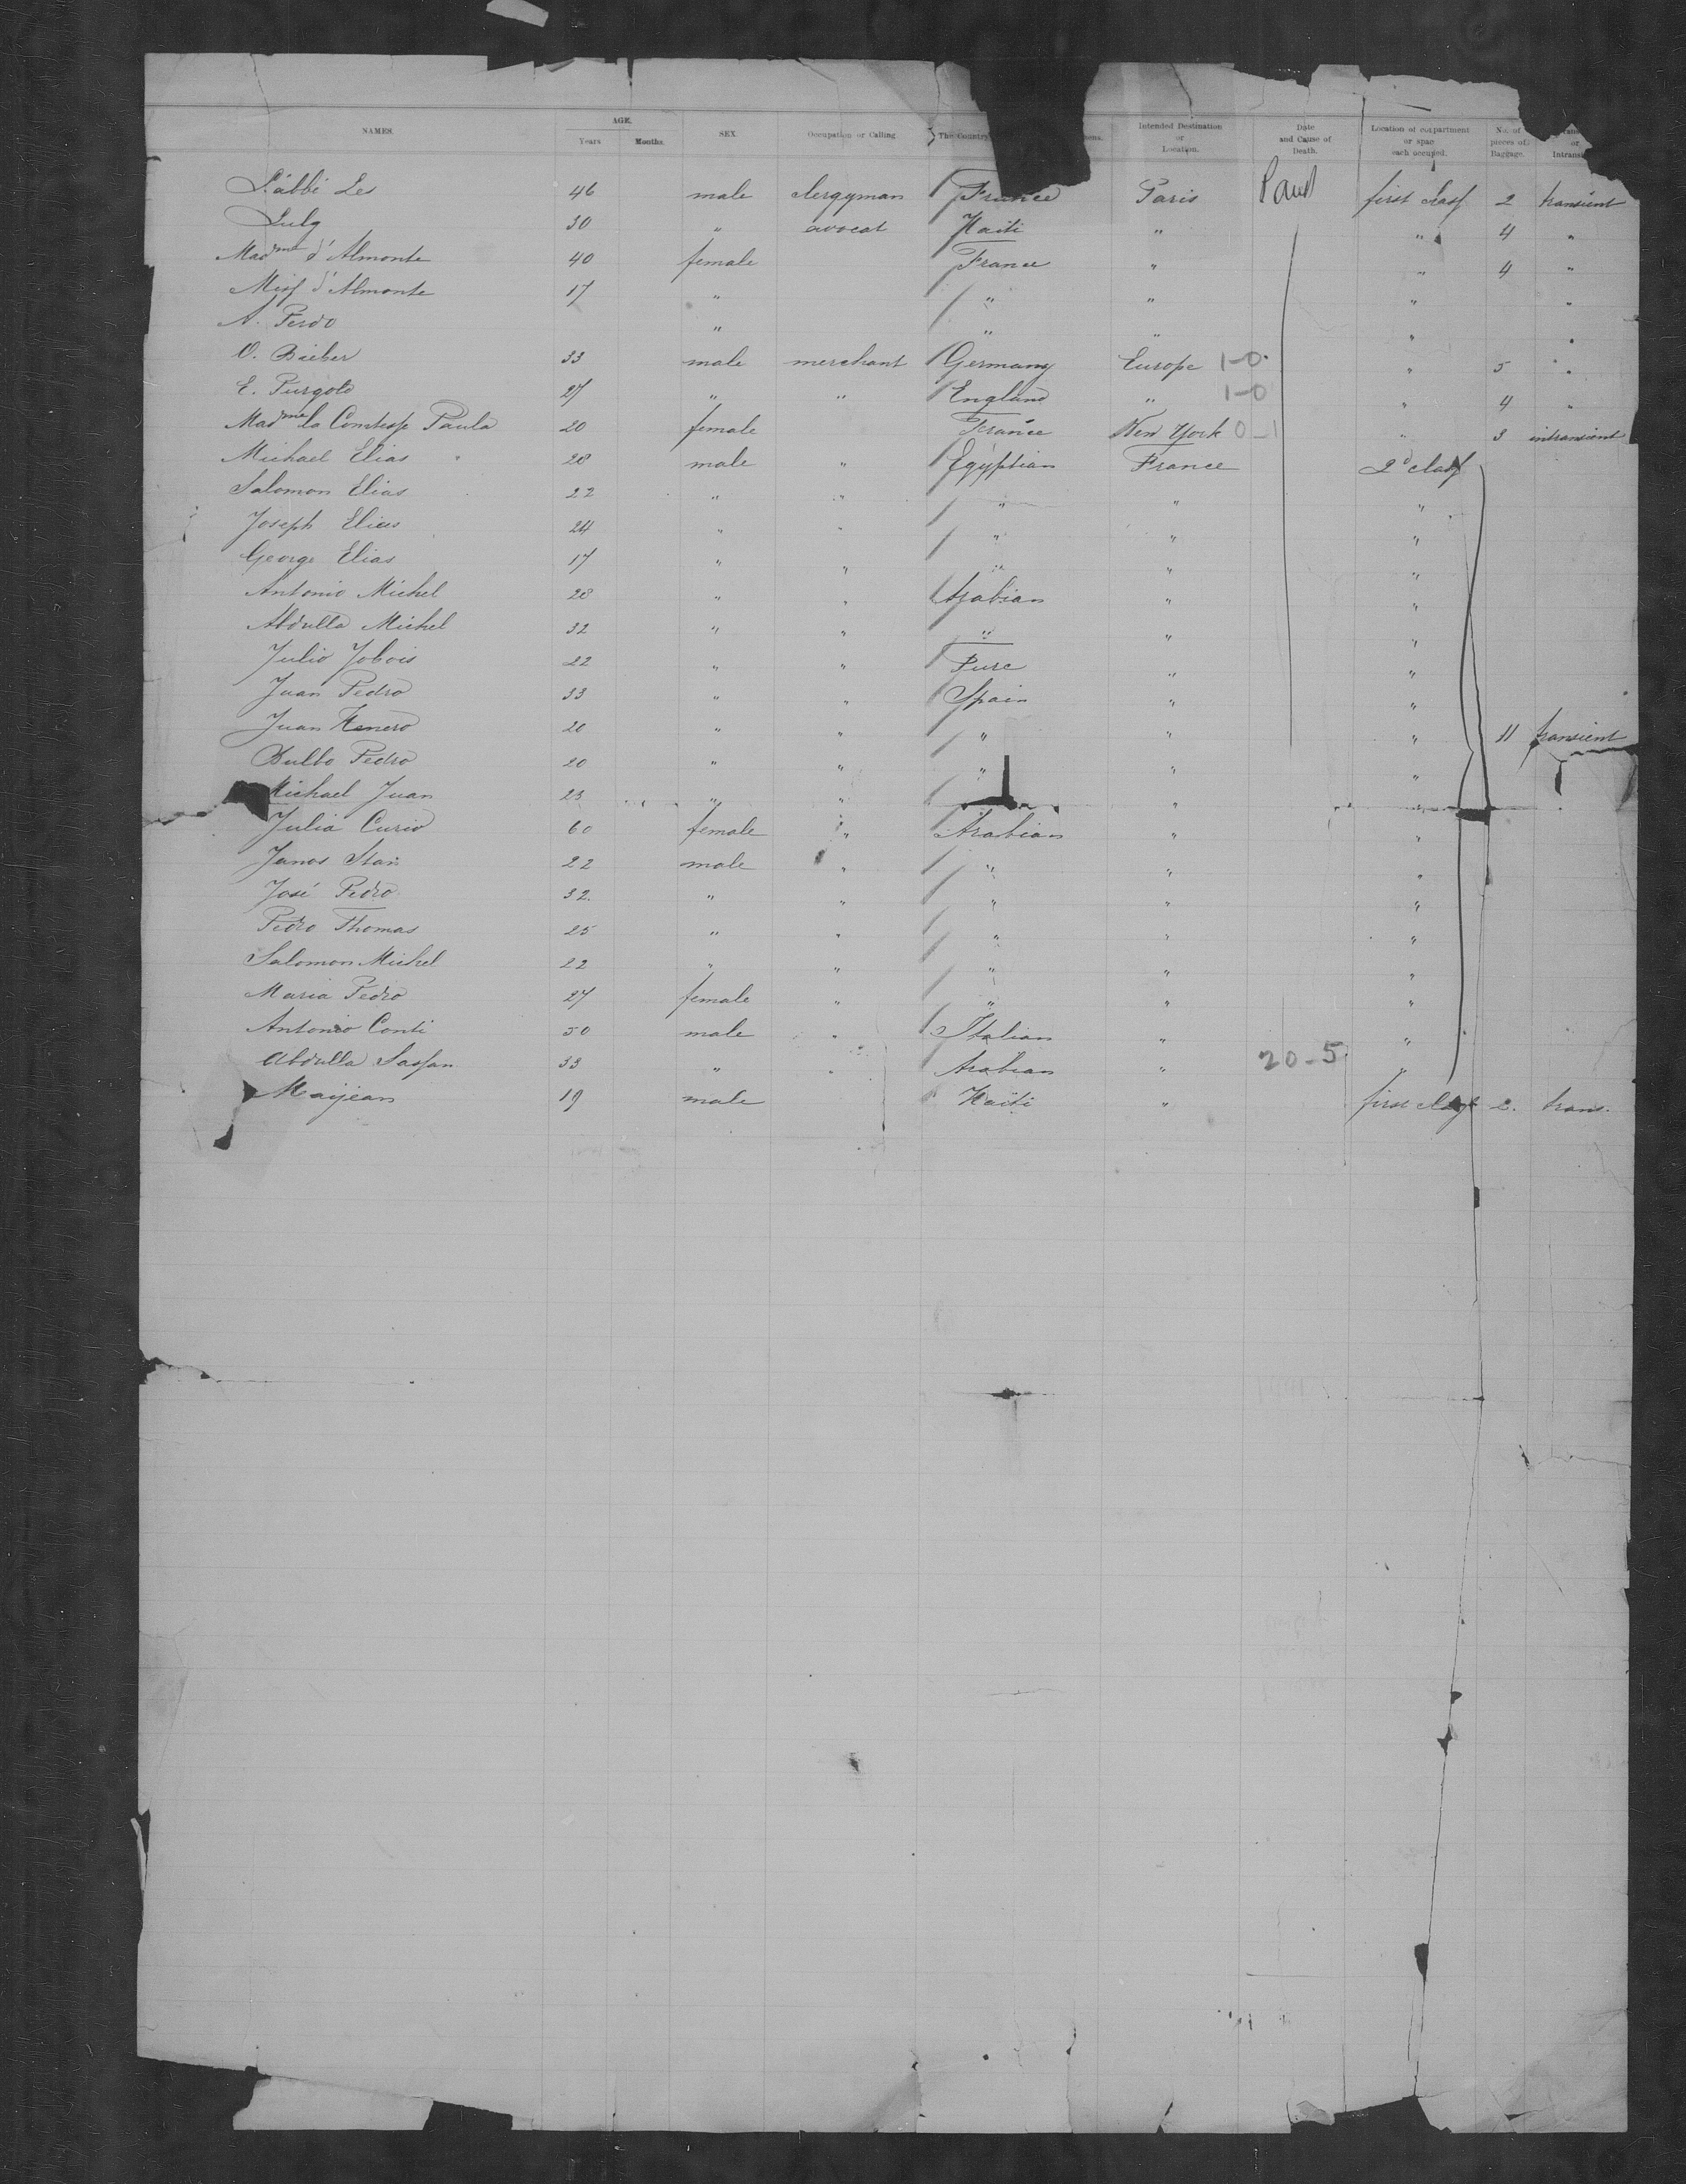 NAMES. AGE. Years Months. SEX. Occupation or Calling The Country Intended Destination or Location. Date and Cause of Death. Location of compartment or spac each occupied. No. of pieces of Baggage. or Intransit
L'abbé Les 46 male clergyman France Paris first class 2 transient
30 " avocat Haiti " " 4 "
Madme d'Almonte 40 female France " " 4 "
Miss d'Almonte 17 " " " " "
A. Perdo " " " " "
O. Bieber 33 male merchant Germany Europe 1-0 " 5 "
E. Purgold 27 " " England " 1-0 " 4 "
Madme la Comtesse Paula 20 female France New York 0-1 " 3 intransient
Michael Elias 28 male " Egyptian France 2d class
Salomon Elias 22 " " " " "
Joseph Elias 24 " " " " "
George Elias 17 " " " " "
Antonio Michel 28 " " Arabian " "
Abdulla Michel 32 " " " " "
Julio 22 " " " "
Juan Pedro 33 " " Spain " "
Juan 20 " " " " " 11 transient
Bulbo Pedro 20 " " " " "
Michael Juan 23 " " " "
Julia Curio 60 female " Arabian " "
Janos 22 male " " " "
José Pedro 32. " " " " "
Pedro Thomas 25 " " " " "
Salomon Michel 22 " " " " "
Maria Pedro 27 female " " " "
Antonio Conti 50 male " Italian " "
Abdulla Sassan 33 " " Arabian " 20-5 "
Maijean 19 male Haiti " first class 2. trans.